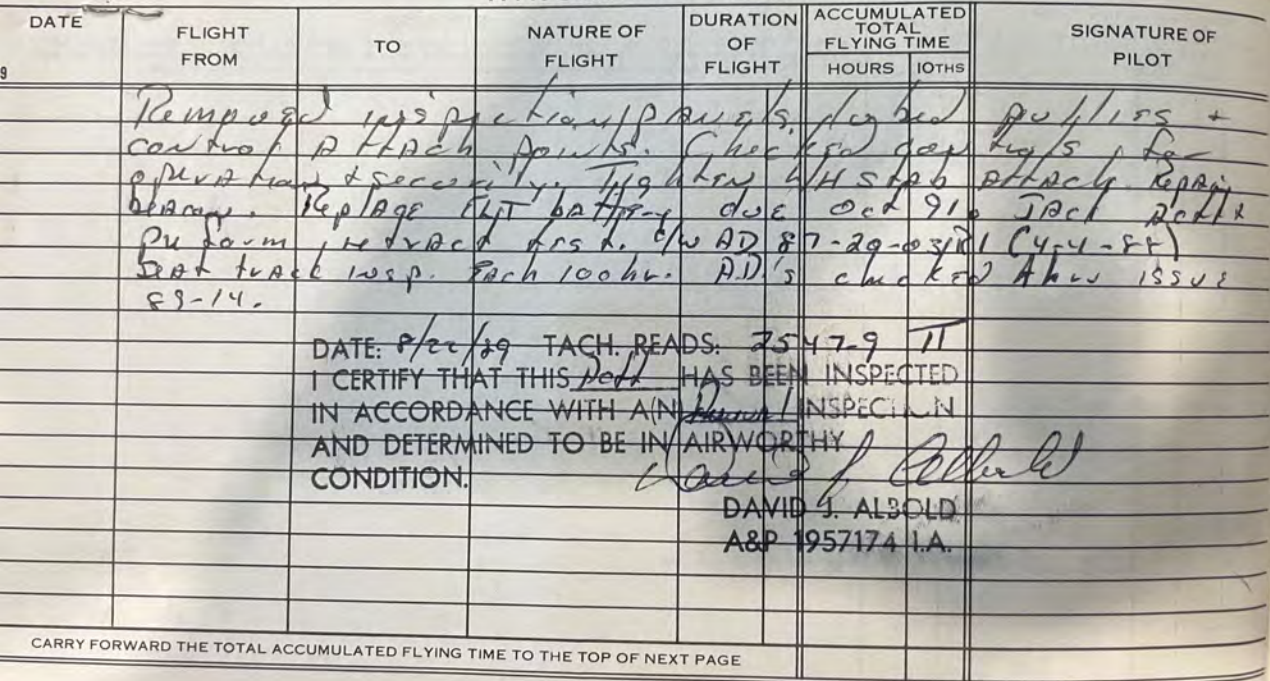 DATE
FLIGHT FROM
TO
NATURE OF FLIGHT
DURATION OF FLIGHT
ACCUMULATED TOTAL FLYING TIME
HOURS 10THS
SIGNATURE OF PILOT
9
Removed inspection panels, lubed pullies +
control attach points. Checked for
operation + security. Tighten L/H stab attach. Repair
Replace ELT battery due Oct 91. Jack
Perform retract test. c/w AD 87-20-03R1 (4-4-88)
Seat track insp. each 100 hr. A.D's checked thru issue
89-14.
DATE: 8/22/89 TACH. READS: 2547.9 TT
I CERTIFY THAT THIS HAS BEEN INSPECTED
IN ACCORDANCE WITH A(N) Annual INSPECTION
AND DETERMINED TO BE IN AIRWORTHY
CONDITION.
DAVID J. ALBOLD
A&P 1957174 I.A.
CARRY FORWARD THE TOTAL ACCUMULATED FLYING TIME TO THE TOP OF NEXT PAGE